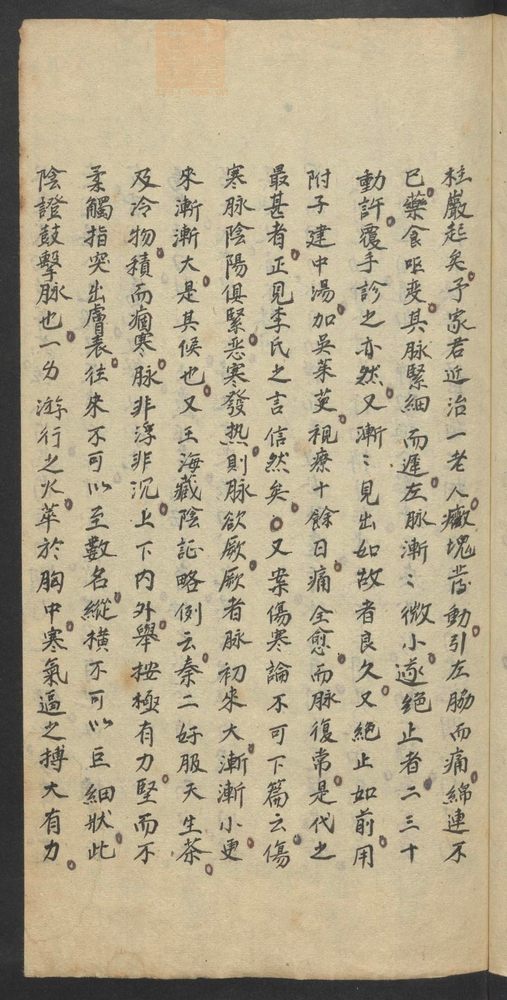 桂巖起矣予家君近治一老人癥塊發動引左脇而痛綿連不
已藥食嘔变其脉緊細而遲左脉漸〻微小遂絕止者二三十
動許覆手診之亦然又漸〻見出如故者良久又絕止如前用
附子建中湯加吳茱萸視療十餘日痛全愈而脉復常是代之
最甚者正見李氏之言信然矣○又案傷寒論不可下篇云傷
寒脉陰陽俱緊惡寒發热則脉欲厥厥者脉初來大漸漸小更
來漸漸大是其候也又王海藏陰証略例云秦二好服天生茶
及冷物積而痼寒脉非浮非沉上下内外舉按極有力堅而不
柔觸指突出膚表往來不可以至數名縱橫不可以巨細狀此
陰證鼓擊脉也一身游行之火萃於胸中寒氣逼之搏大有力